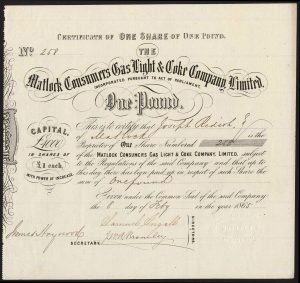 CERTIFICATE OF ONE SHARE OF ONE POUND.
No. 258
THE
Matlock Consumers Gas Light & Coke Company, Limited.
INCORPORATED PURSUANT TO ACT OF PARLIAMENT.
One Pound.
CAPITAL,
IN SHARES OF
£1 each,
WITH POWER OF INCREASE.
This is to certify that Joseph
Matlock is the
Proprietor of One Share Numbered 258
of the MATLOCK CONSUMERS GAS LIGHT & COKE COMPANY, LIMITED, subject
to the Regulations of the said Company and that up to
this day there has been paid up in respect of such Share the
sum of One pound
Given under the Common Seal of the said Company
the 8 day of Feby in the year 1865
James Haywood
SECRETARY.
Samuel
DIRECTORS.